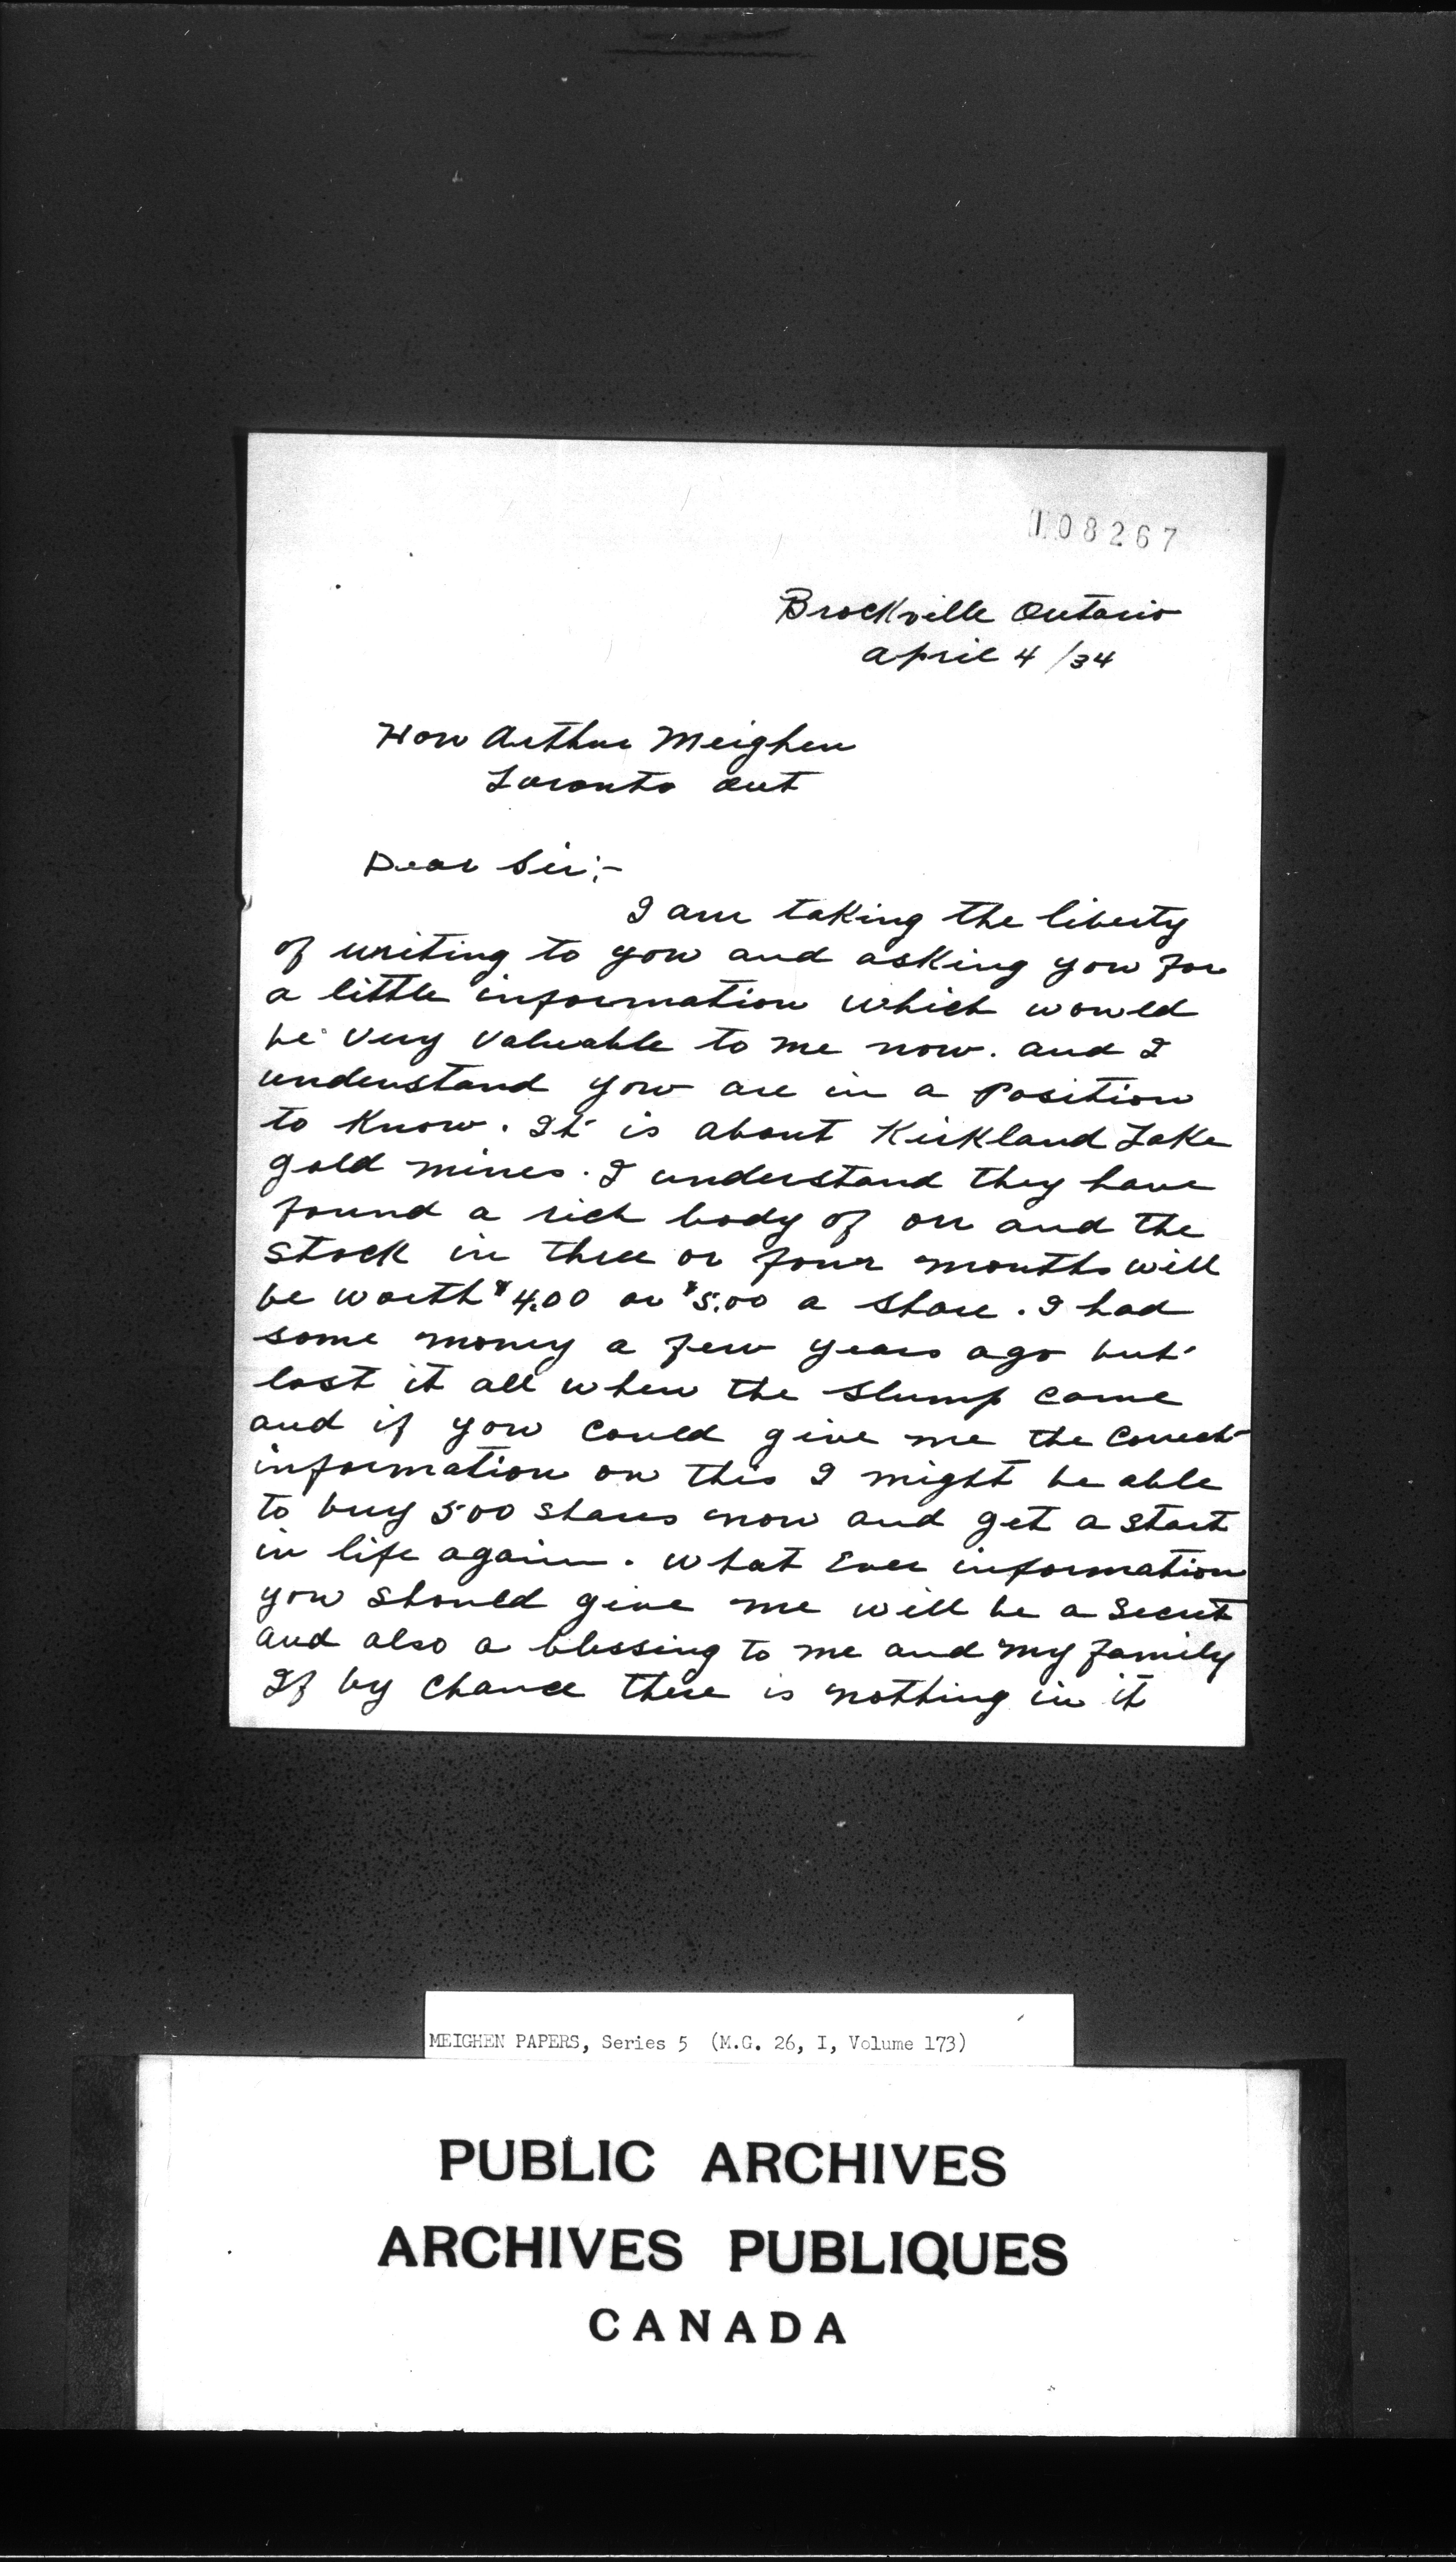 108267
Brockville Ontario
April 4/34
Hon Arthur Meighen
Toronto Ont
Dear Sir:-
I am taking the liberty
of writing to you and asking you for
a little information which would
be very valuable to me now. and I
understand you are in a position
to know. It is about Kirkland Lake
gold mines. I understand they have
found a rich body of orr and the
stock in three or four months will
be worth $4.00 or $5.00 a share. I had
some money a few years ago but
lost it all when the slump came
and if you could give me the correct
information on this I might be able
to buy 500 shares now and get a start
in life again. What Ever information
you should give me will be a secret
and also a blessing to me and my family
If by chance there is nothing in it
MEIGHEN PAPERS, Series 5 (M.G. 26, I, Volume 173)
PUBLIC ARCHIVES
ARCHIVES PUBLIQUES
CANADA